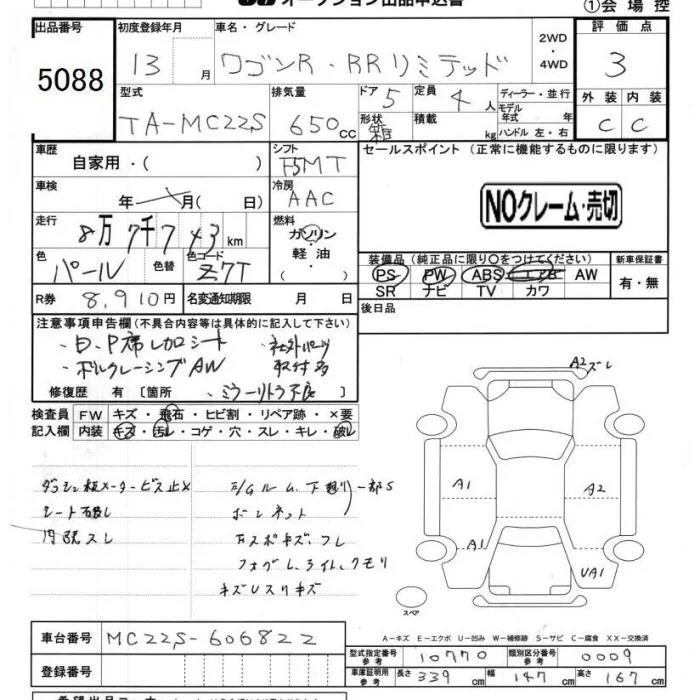 オークション出品申込書
①会場控
出品番号 5088
初度登録年月 13 月
車名・グレード ワゴンR・RRリミテッド
2WD・4WD
評価点 3
外装 C 内装 C
型式 TA-MC22S
排気量 650cc
ドア 5
形状 箱
定員 4人
積載 kg
ディーラー・並行
モデル年式 年
ハンドル 左・右
車歴 自家用・( )
シフト F5MT
セールスポイント(正常に機能するものに限ります)
NOクレーム・売切
車検 年 月( 日)
冷房 AAC
走行 8万7千743km
燃料 ガソリン・軽油・( )
色 パール 色替
色コード Z7T
装備品(純正品に限り○をつけてください)
PS PW ABS エアB AW
SR ナビ TV カワ
新車保証書 有・無
R券 8,910円
名変通知期限 月 日
後日品
注意事項申告欄(不具合内容等は具体的に記入して下さい)
・D、P席レカロシート ・社外パーツ
・ボルクレーシングAW 取付多
・ミラーリトラ不良
修復歴 有 [箇所 ]
検査員 FW キズ・飛石・ヒビ割・リペア跡・×要
記入欄 内装 キズ・汚レ・コゲ・穴・スレ・キレ・破レ
A2ズレ
A1
A2
A1
UA1
スペア
シート破レ
内張スレ
ボンネット
フォグL、ライト、クモリ
A-キズ E-エクボ U-凹み W-補修跡 S-サビ C-腐食 XX-交換済
車台番号 MC22S-606822
登録番号
型式指定番号 参考 10770
類別区分番号 参考 0009
車庫証明用 参考 長さ 339cm 幅 147cm 高さ 167cm